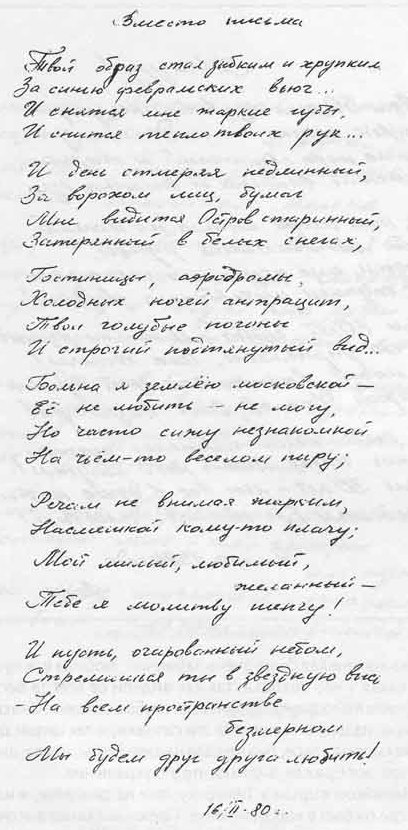 Вместо письма
Твой образ стал зыбким и хрупким
За синью февральских вьюг...
И снятся мне жаркие губы,
И снится тепло твоих рук...
И день отмеряя недлинный,
За ворохом лиц, бумаг
Мне видится Остров старинный,
Затерянный в белых снегах,
Гостиницы, аэродромы,
Холодных ночей антрацит,
Твои голубые погоны
И строгий подтянутый вид...
Больна я землёю московской —
Её не любить – не могу,
Но часто сижу незнакомкой
На чьём-то веселом пиру;
Речам не внимая жарким,
Насмешкой кому-то плачу;
Мой милый, любимый,
желанный —
Тебе я молитву шепчу!
И пусть, очарованный небом,
Стремишься ты в звездную высь
– На всем пространстве
безмерном
Мы будем друг друга любить!
16, II – 80 г.